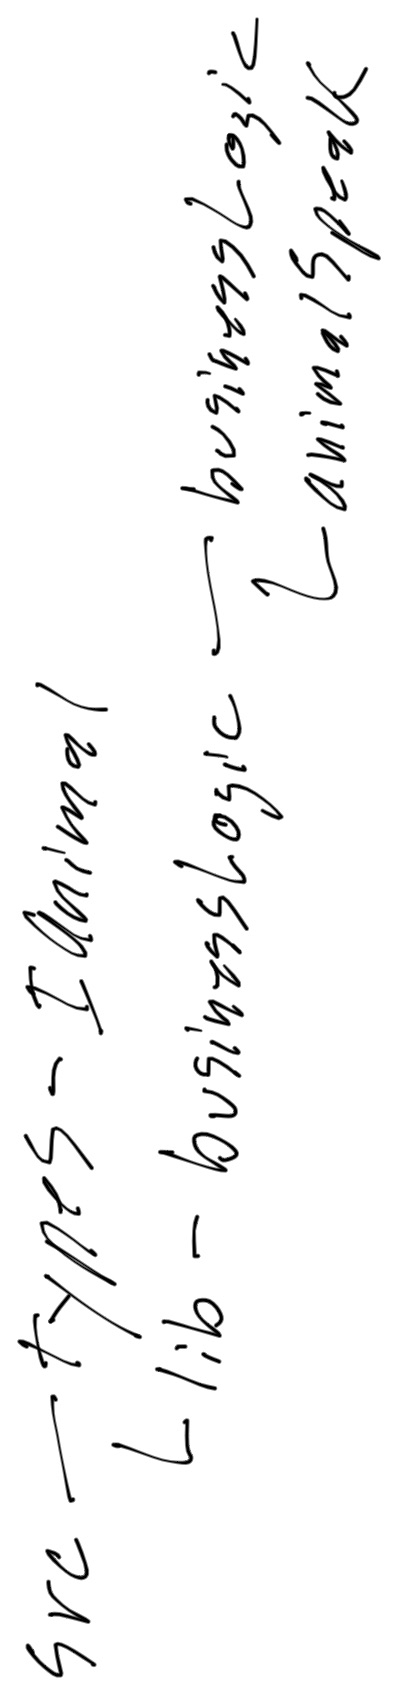 src — types - IAnimal
lib - businessLogic — businessLogic
animalSpeak